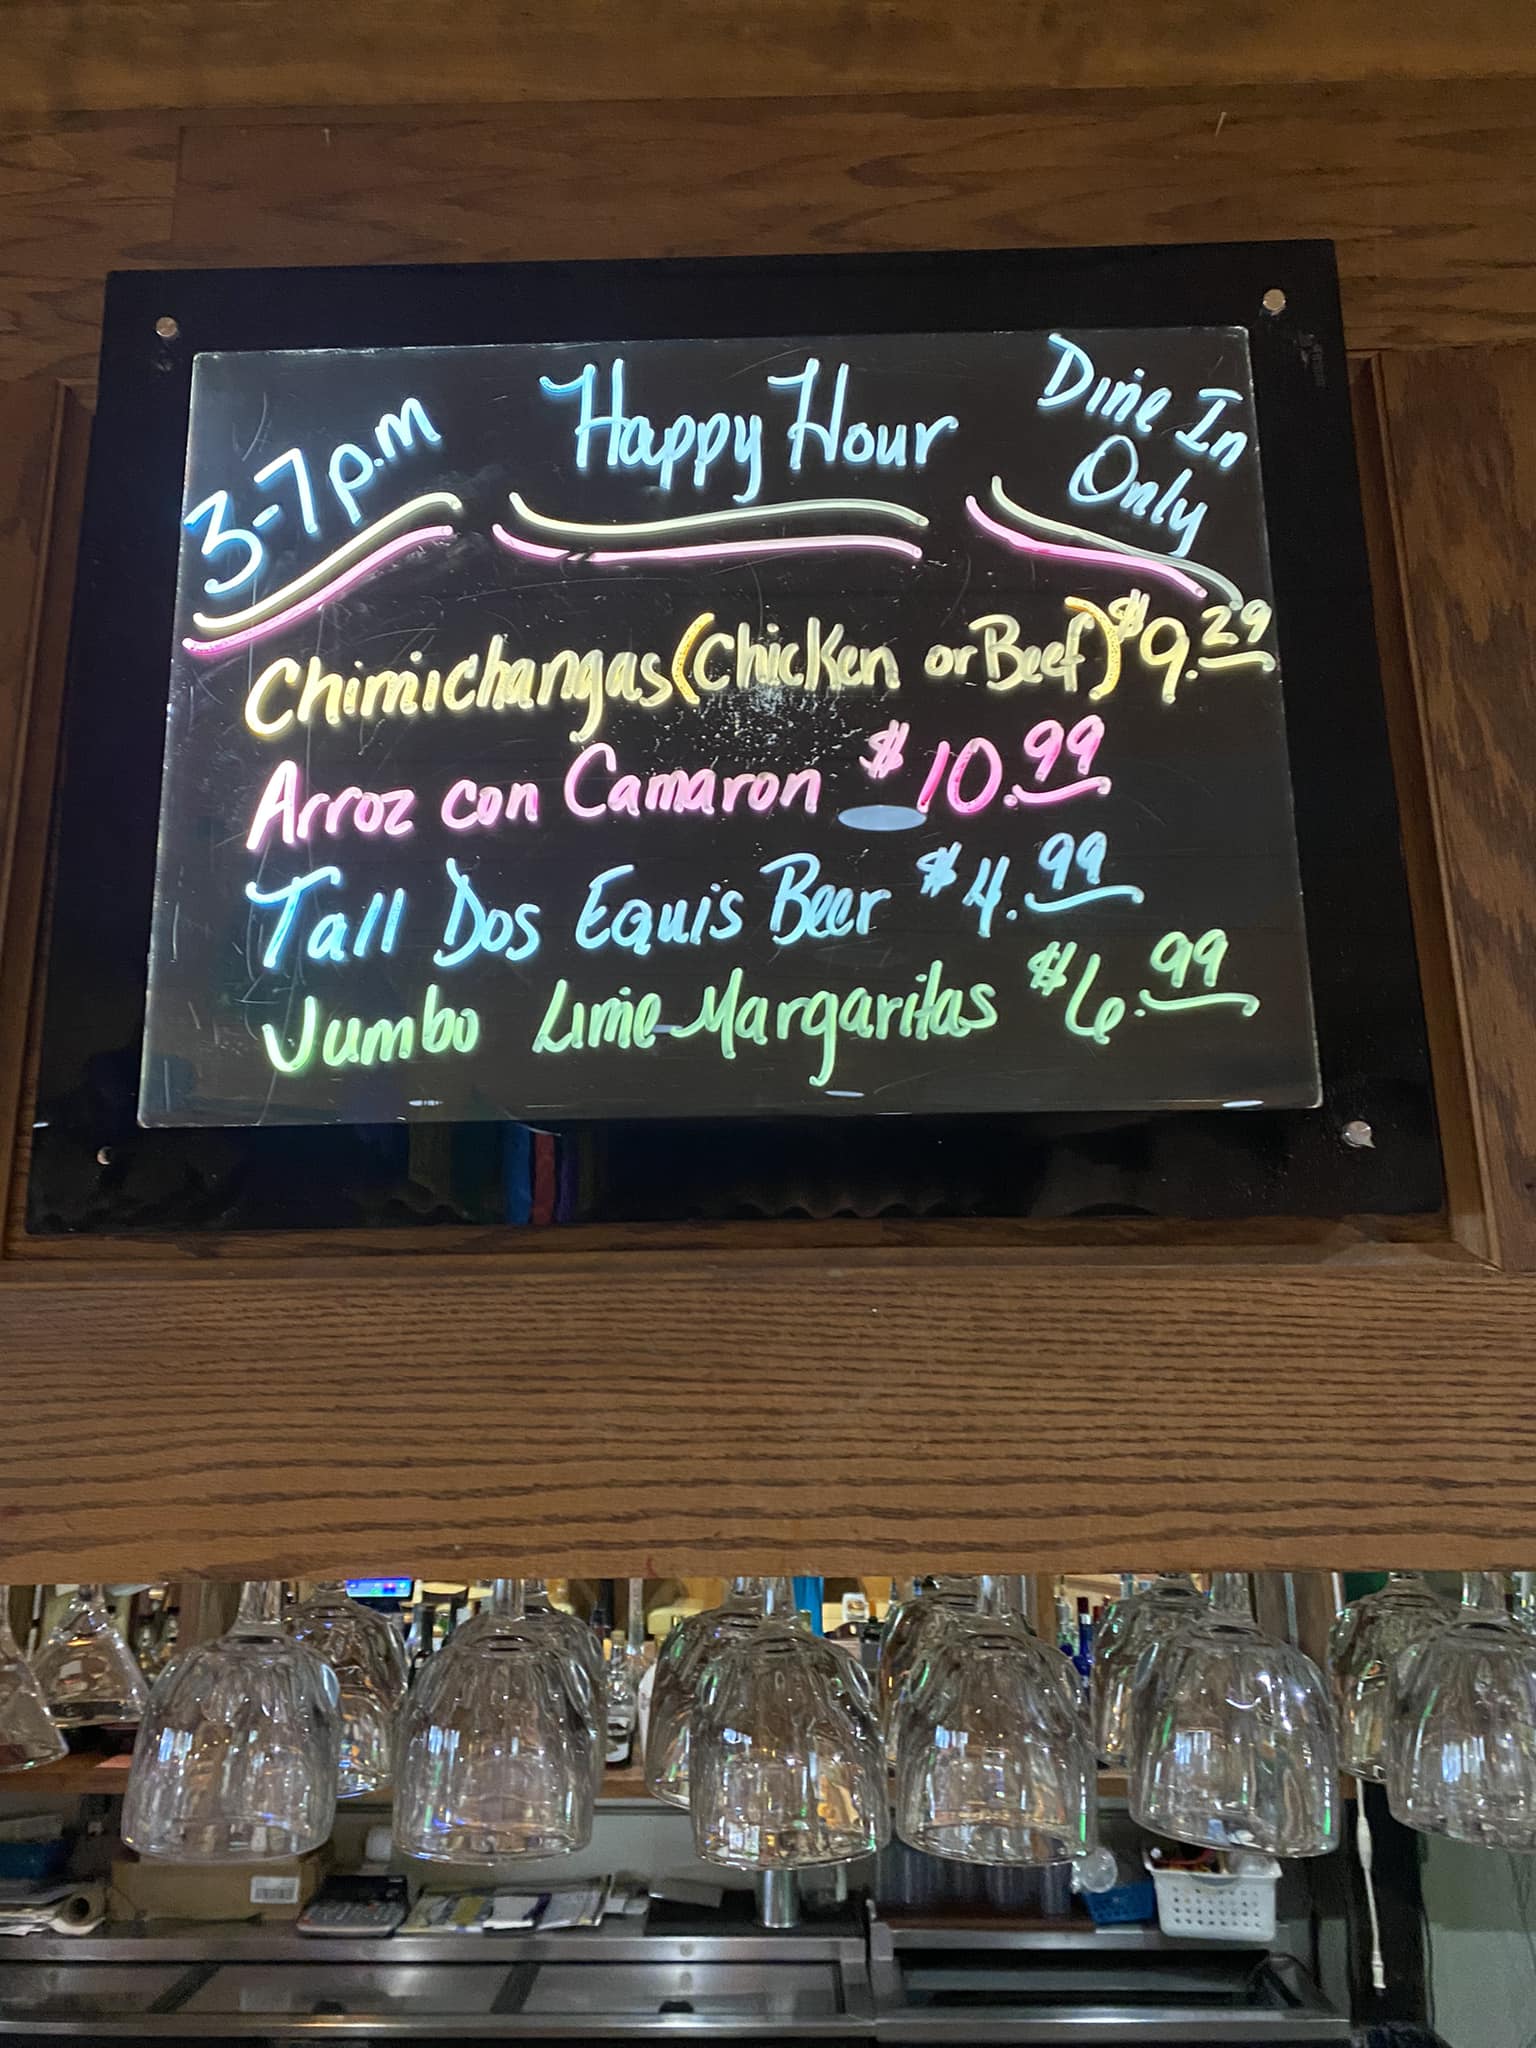 3-7p.m
Happy Hour
Dine In
Only
Chimichangas (Chicken or Beef) $9.29
Arroz con Camaron $10.99
Tall Dos Equis Beer $4.99
Jumbo Lime Margaritas $6.99